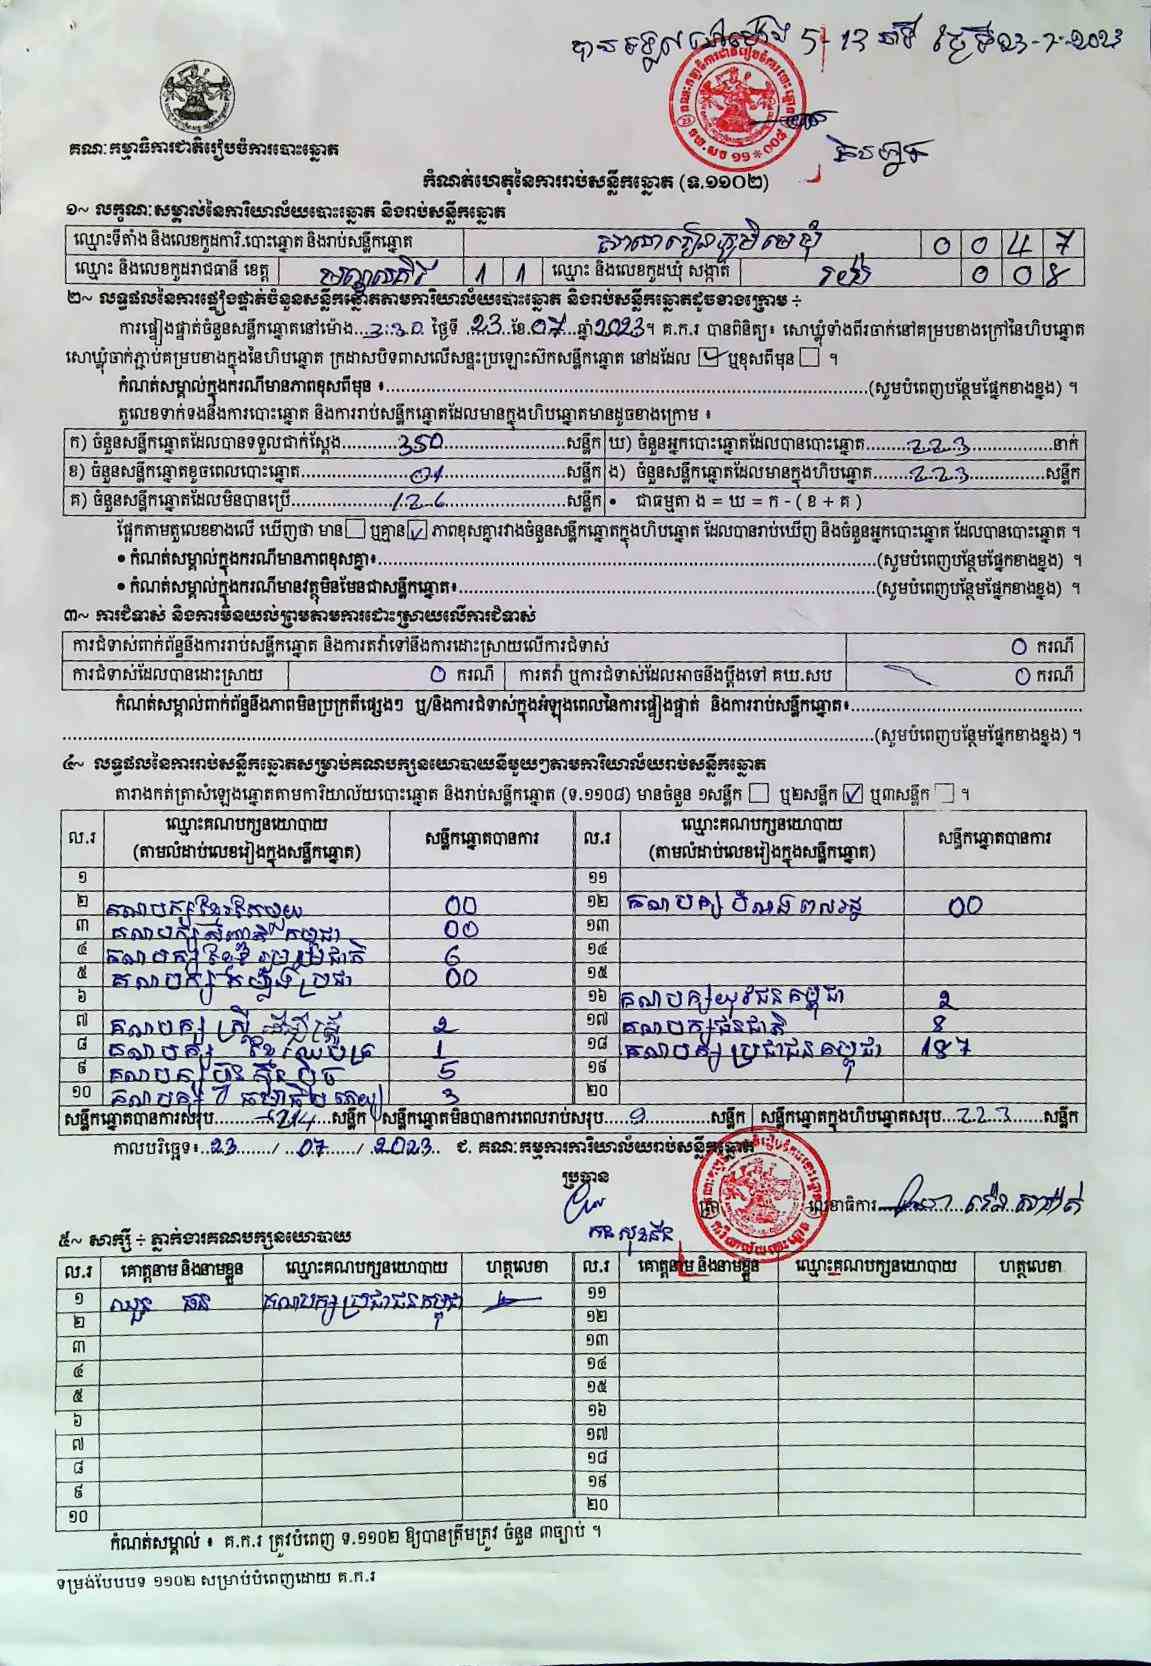 បានទទួលនៅម៉ោង 5-13 នាទី ថ្ងៃទី23-7-2023
គណៈកម្មាធិការជាតិរៀបចំការបោះឆ្នោត
កំណត់ហេតុនៃការរាប់សន្លឹកឆ្នោត (ទ.១១០២)
១~ លក្ខណៈសម្គាល់នៃការិយាល័យបោះឆ្នោត និងរាប់សន្លឹកឆ្នោត
ឈ្មោះទីតាំង និងលេខកូដការិ.បោះឆ្នោត និងរាប់សន្លឹកឆ្នោត សាលារៀនភូមិមេឃុំ 0 0 4 7
ឈ្មោះ និងលេខកូដរាជធានី ខេត្ត មណ្ឌលគិរី 1 1 ឈ្មោះ និងលេខកូដឃុំ សង្កាត់ រយ៉ 0 0 8
២~ លទ្ធផលនៃការផ្ទៀងផ្ទាត់ចំនួនសន្លឹកឆ្នោតតាមការិយាល័យបោះឆ្នោត និងរាប់សន្លឹកឆ្នោតដូចខាងក្រោម ÷
ការផ្ទៀងផ្ទាត់ចំនួនសន្លឹកឆ្នោតនៅម៉ោង...3:30 ថ្ងៃទី ..23..ខែ.07...ឆ្នាំ2023។ គ.ក.រ បានពិនិត្យ៖ សោឃ្លុំទាំងពីរចាក់នៅគម្របខាងក្រៅនៃហិបឆ្នោត
សោឃ្លុំចាក់ភ្ជាប់គម្របខាងក្នុងនៃហិបឆ្នោត ក្រដាសបិទពាសលើសន្ទះប្រឡោះស៊កសន្លឹកឆ្នោត នៅដដែល ☑ ឬខុសពីមុន ☐ ។
កំណត់សម្គាល់ក្នុងករណីមានភាពខុសពីមុន ៖..........(សូមបំពេញបន្ថែមផ្នែកខាងខ្នង) ។
តួលេខទាក់ទងនឹងការបោះឆ្នោត និងការរាប់សន្លឹកឆ្នោតដែលមានក្នុងហិបឆ្នោតមានដូចខាងក្រោម ៖
ក) ចំនួនសន្លឹកឆ្នោតដែលបានទទួលជាក់ស្តែង..........350..........សន្លឹក ឃ) ចំនួនអ្នកបោះឆ្នោតដែលបានបោះឆ្នោត........223..........នាក់
ខ) ចំនួនសន្លឹកឆ្នោតខូចពេលបោះឆ្នោត..........01..........សន្លឹក ង) ចំនួនសន្លឹកឆ្នោតដែលមានក្នុងហិបឆ្នោត.......223..........សន្លឹក
គ) ចំនួនសន្លឹកឆ្នោតដែលមិនបានប្រើ..........126..........សន្លឹក • ជាធម្មតា ង = ឃ = ក - ( ខ + គ )
ផ្អែកតាមតួលេខខាងលើ ឃើញថា មាន ☐ ឬគ្មាន ☑ ភាពខុសគ្នារវាងចំនួនសន្លឹកឆ្នោតក្នុងហិបឆ្នោត ដែលបានរាប់ឃើញ និងចំនួនអ្នកបោះឆ្នោត ដែលបានបោះឆ្នោត ។
• កំណត់សម្គាល់ក្នុងករណីមានភាពខុសគ្នា៖..........(សូមបំពេញបន្ថែមផ្នែកខាងខ្នង) ។
• កំណត់សម្គាល់ក្នុងករណីមានវត្ថុមិនមែនជាសន្លឹកឆ្នោត៖..........(សូមបំពេញបន្ថែមផ្នែកខាងខ្នង) ។
៣~ ការជំទាស់ និងការមិនយល់ព្រមតាមការដោះស្រាយលើការជំទាស់
ការជំទាស់ពាក់ព័ន្ធនឹងការរាប់សន្លឹកឆ្នោត និងការតវ៉ាទៅនឹងការដោះស្រាយលើការជំទាស់ 0 ករណី
ការជំទាស់ដែលបានដោះស្រាយ 0 ករណី ការតវ៉ា ឬការជំទាស់ដែលអាចនឹងប្តឹងទៅ គឃ.សប 0 ករណី
កំណត់សម្គាល់ពាក់ព័ន្ធនឹងភាពមិនប្រក្រតីផ្សេងៗ ឬ/និងការជំទាស់ក្នុងអំឡុងពេលនៃការផ្ទៀងផ្ទាត់ និងការរាប់សន្លឹកឆ្នោត៖..........
..........(សូមបំពេញបន្ថែមផ្នែកខាងខ្នង) ។
៤~ លទ្ធផលនៃការរាប់សន្លឹកឆ្នោតសម្រាប់គណបក្សនយោបាយនីមួយៗតាមការិយាល័យរាប់សន្លឹកឆ្នោត
តារាងកត់ត្រាសំឡេងឆ្នោតតាមការិយាល័យបោះឆ្នោត និងរាប់សន្លឹកឆ្នោត (ទ.១១០៨) មានចំនួន ១សន្លឹក ☐ ឬ២សន្លឹក ☑ ឬ៣សន្លឹក ☐ ។
ល.រ ឈ្មោះគណបក្សនយោបាយ (តាមលំដាប់លេខរៀងក្នុងសន្លឹកឆ្នោត) សន្លឹកឆ្នោតបានការ ល.រ ឈ្មោះគណបក្សនយោបាយ (តាមលំដាប់លេខរៀងក្នុងសន្លឹកឆ្នោត) សន្លឹកឆ្នោតបានការ
១ ១១
២ គណបក្សខ្មែរតែមួយ 00 ១២ គណបក្ស បំណងពលរដ្ឋ 00
៣ គណបក្សសញ្ជាតិកម្ពុជា 00 ១៣
៤ គណបក្សខ្មែររួបរួមជាតិ 6 ១៤
៥ គណបក្ស កម្លាំងប្រជា 00 ១៥
៦ ១៦ គណបក្សយុវជនកម្ពុជា 2
៧ គណបក្ស ស្ត្រីដើម្បីស្ត្រី 2 ១៧ គណបក្សជនជាតិ 8
៨ គណបក្ស ខ្មែរឈប់ក្រ 1 ១៨ គណបក្ស ប្រជាជនកម្ពុជា 187
៩ គណបក្សហ៊្វុនស៊ិនប៉ិច 5 ១៩
១០ គណបក្ស ធម្មាធិបតេយ្យ 3 ២០
សន្លឹកឆ្នោតបានការសរុប..........214......សន្លឹក សន្លឹកឆ្នោតមិនបានការពេលរាប់សរុប....9..........សន្លឹក សន្លឹកឆ្នោតក្នុងហិបឆ្នោតសរុប...223......សន្លឹក
កាលបរិច្ឆេទ៖..23....../...07....../.2023.. ជ. គណៈកម្មការការិយាល័យរាប់សន្លឹកឆ្នោត
ប្រធាន
លេខាធិការ
៥~ សាក្សី ÷ ភ្នាក់ងារគណបក្សនយោបាយ
ល.រ គោត្តនាម និងនាមខ្លួន ឈ្មោះគណបក្សនយោបាយ ហត្ថលេខា ល.រ គោត្តនាម និងនាមខ្លួន ឈ្មោះគណបក្សនយោបាយ ហត្ថលេខា
១ ឈួន ធន គណបក្សប្រជាជនកម្ពុជា ១១
២ ១២
៣ ១៣
៤ ១៤
៥ ១៥
៦ ១៦
៧ ១៧
៨ ១៨
៩ ១៩
១០ ២០
កំណត់សម្គាល់ ៖ គ.ក.រ ត្រូវបំពេញ ទ.១១០២ ឱ្យបានត្រឹមត្រូវ ចំនួន ៣ច្បាប់ ។
ទម្រង់បែបបទ ១១០២ សម្រាប់បំពេញដោយ គ.ក.រ